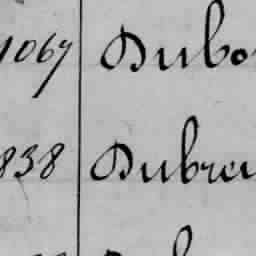 1067 Dubo
838 Dubreu